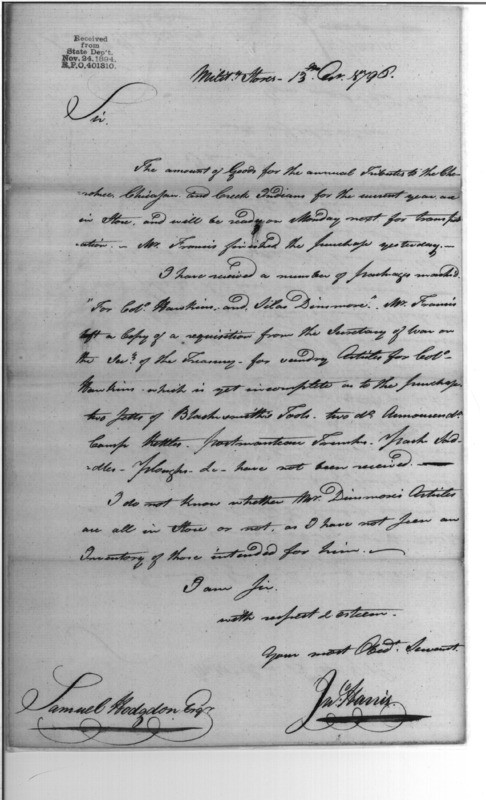 Received
from
State Dep't.
Nov. 24. 1894.
R.P.O, 401310.
Milit.y Stores - 13th Oct. 1798.
Sir.
The amount of Goods for the annual Tributes to the Che-
rokee, Chicasaw and Creek Indians for the current year, are
in Store, and will be ready on Monday next for transport-
ation. - Mr. Francis finished the purchase yesterday. -
I have received a number of packages marked.
"For Colo. Hawkins. and Silas Dinsmore." Mr. Francis
left a Copy of a requisition from the Secretary of War on
the Sec.y of the Treasury - for sundry Articles for Colo.
Hawkins - which is yet incomplete as to the purchase
two Setts of Blacksmith's Tools. two do. Armourers do.
Camp Kettles. portmanteau Trunks. Pack Sad-
dles - Ploughs. &c - have not been received. -
I do not know whether Mr. Dinsmore's Articles
are all in Store or not, as I have not seen an
Inventory of those intended for him. -
I am Sir.
with respect & esteem.
Your most Obed.t Servant.
Jno. Harris
Samuel Hodgdon Esqr